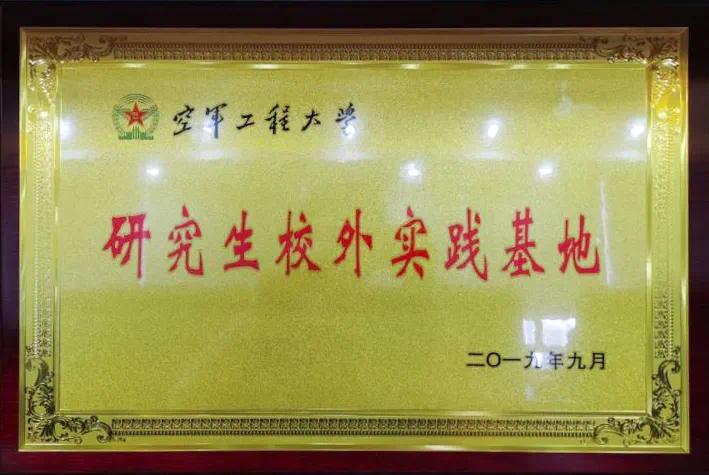 空军工程大学
研究生校外实践基地
二〇一九年九月